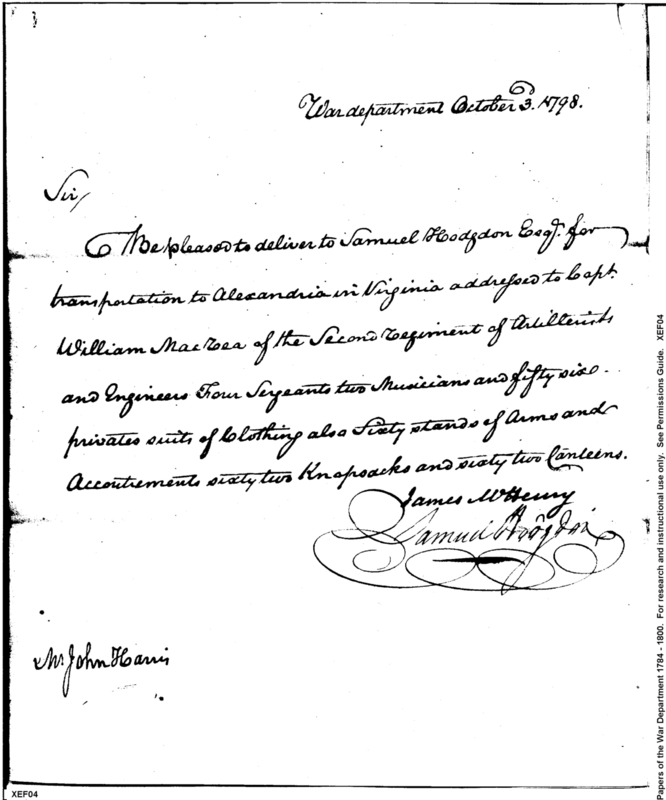 War department October 3d. 1798.
Sir,
Be pleased to deliver to Samuel Hodgdon Esqr. for
transportation to Alexandria in Virginia addressed to Capt.
William MacRea of the Second Regiment of Artillerists
and Engineers Four Sergeants two Musicians and fifty six
privates suits of Clothing also Sixty stands of Arms and
Accoutrements sixty two Knapsacks and sixty two Canteens.
James McHenry
Samuel Hodgdon
Mr John Harris
XEF04
Papers of the War Department 1784 - 1800. For research and instructional use only. See Permissions Guide. XEF04